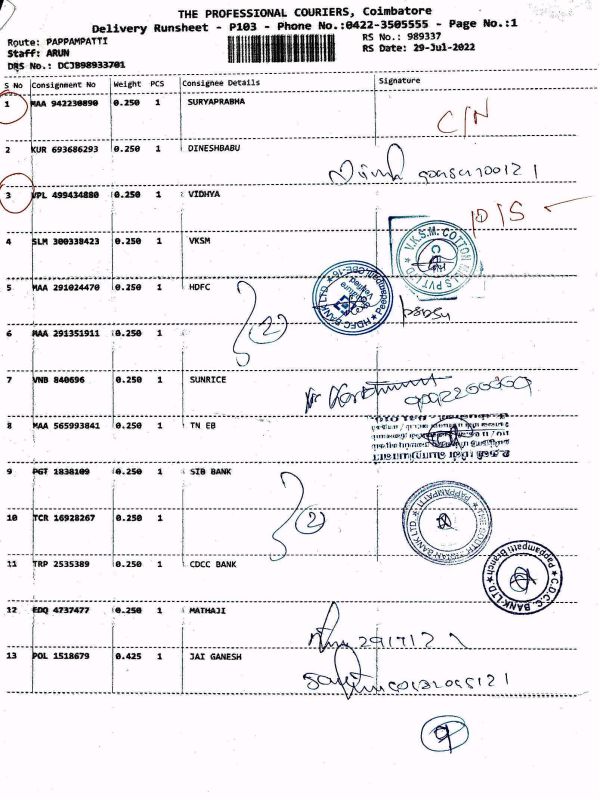 THE PROFESSIONAL COURIERS, Coimbatore
Delivery Runsheet - P103 - Phone No.:0422-3505555 - Page No.:1
Route: PAPPAMPATTI RS No.: 989337
Staff: ARUN RS Date: 29-Jul-2022
DRS No.: DCJB98933701
S No Consignment No Weight PCS Consignee Details Signature
1 MAA 942230890 0.250 1 SURYAPRABHA
C/N
2 KUR 693686293 0.250 1 DINESHBABU
3 VPL 499434880 0.250 1 VIDHYA
D/S
4 SLM 300338423 0.250 1 VKSM
V.K.S.M. COTTON MILLS PVT LTD
5 MAA 291024470 0.250 1 HDFC
HDFC BANK LTD
2
6 MAA 291351911 0.250 1
7 VNB 840696 0.250 1 SUNRICE
8 MAA 565993841 0.250 1 TN EB
9 PGT 1838109 0.250 1 SIB BANK
THE SOUTH INDIAN BANK LTD. PAPPAMPATTI
2
10 TCR 16928267 0.250 1
11 TRP 2535389 0.250 1 CDCC BANK
C.D.C.C. BANK LTD. Pappampatti Branch
12 EDQ 4737477 0.250 1 MATHAJI
13 POL 1518679 0.425 1 JAI GANESH
9